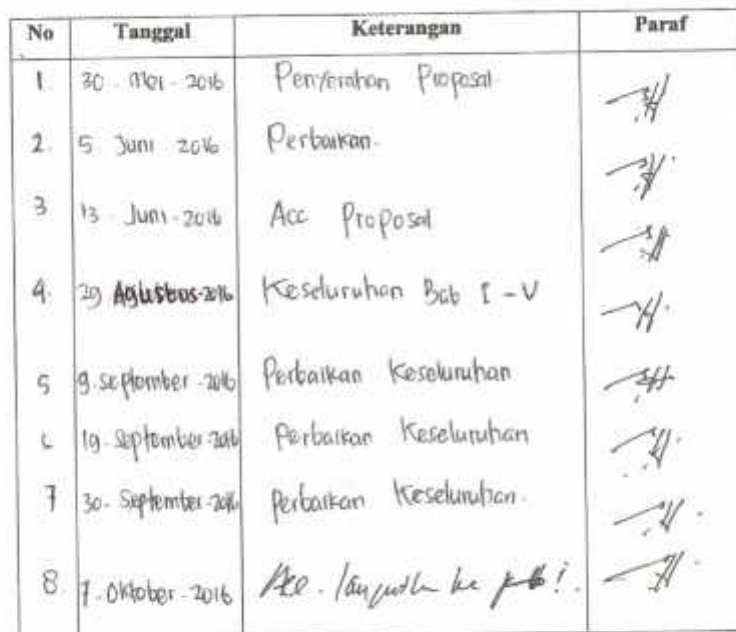 No Tanggal Keterangan Paraf
1. 30 - Mei - 2016 Penyerahan Proposal.
2. 5 Juni 2016 Perbaikan.
3 13 - Juni - 2016 Acc Proposal
4. 29 Agustus-2016 Keseluruhan Bab I - V
5 9. September - 2016 Perbaikan Keseluruhan
6 19 - September - 2016 Perbaikan Keseluruhan
7 30 - September - 2016 Perbaikan Keseluruhan.
8. 7 - Oktober - 2016 Acc -